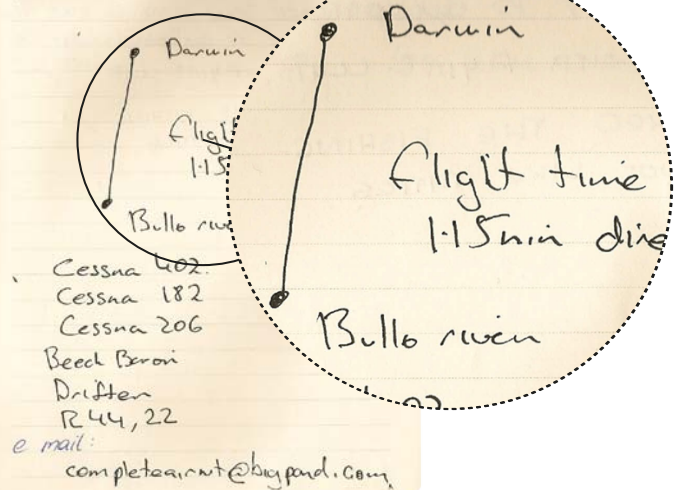 Darwin
Flight
1.15
Bullo rive
Cessna 402.
Cessna 182
Cessna 206
Beech Baron
Drifter
R44, 22
e mail:
completeairnt@bigpond.com
Darwin
flight time
1.15min dire
Bullo river